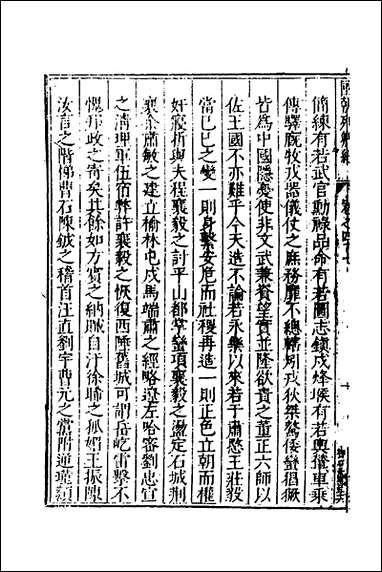 簡練有若武官勳祿品命有若圖志鎮戍烽堠有若輿輦車乘
傳驛廐牧戎器儀仗之庶務靡不總轄矧戎狄桀驁倭蠻猖獗
皆爲中國隱憂使非文武兼資望實並隆欲責之董正六師以
佐王國不亦難乎今天造不論若永樂以來若于肅愍王莊毅
當己巳之變一則身繫安危而社稷再造一則正色立朝而權
奸寢折與夫程襄毅之討平山都掌蠻項襄毅之盪定石城荆
襄余肅敏之建立榆林屯戍馬端肅之經略遼左哈密劉忠宣
之淸理軍伍宿弊許襄毅之恢復西陲舊城可謂岳屹雷擊不
愧邦政之寄矣其餘如方賓之納賕自汙徐晞之孤媚王振陳
汝言之階梯曹石陳鉞之稽首汪直劉宇曹元之黨附逆瑾須